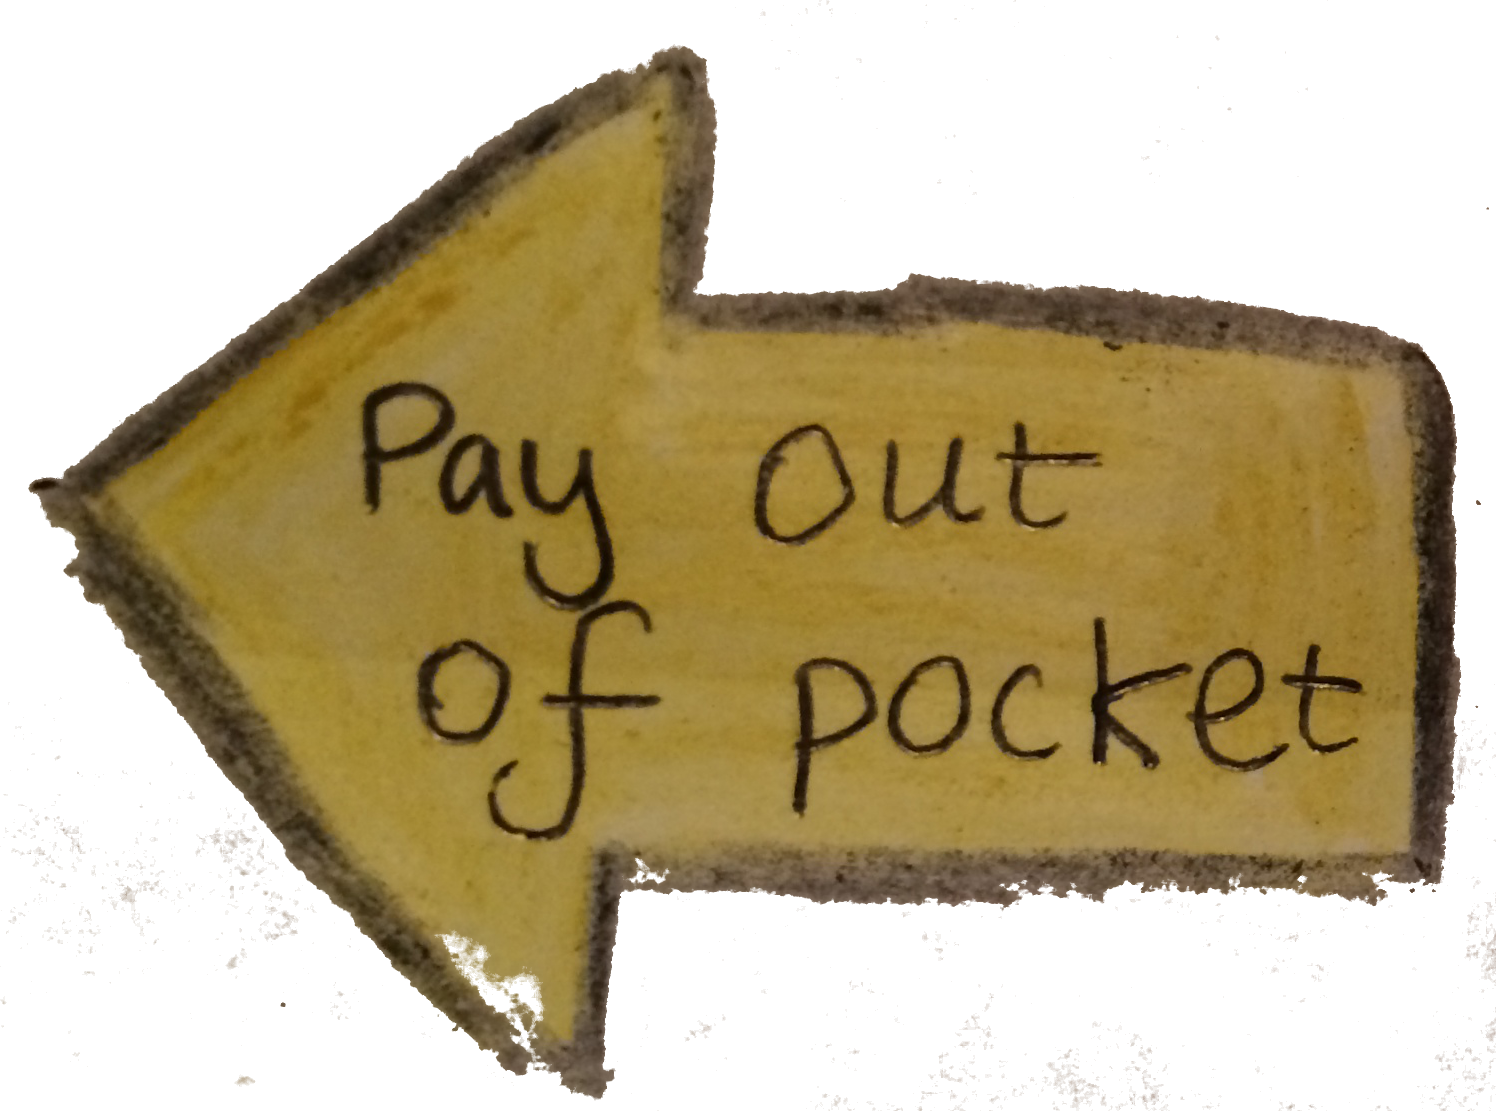 Pay out
of pocket